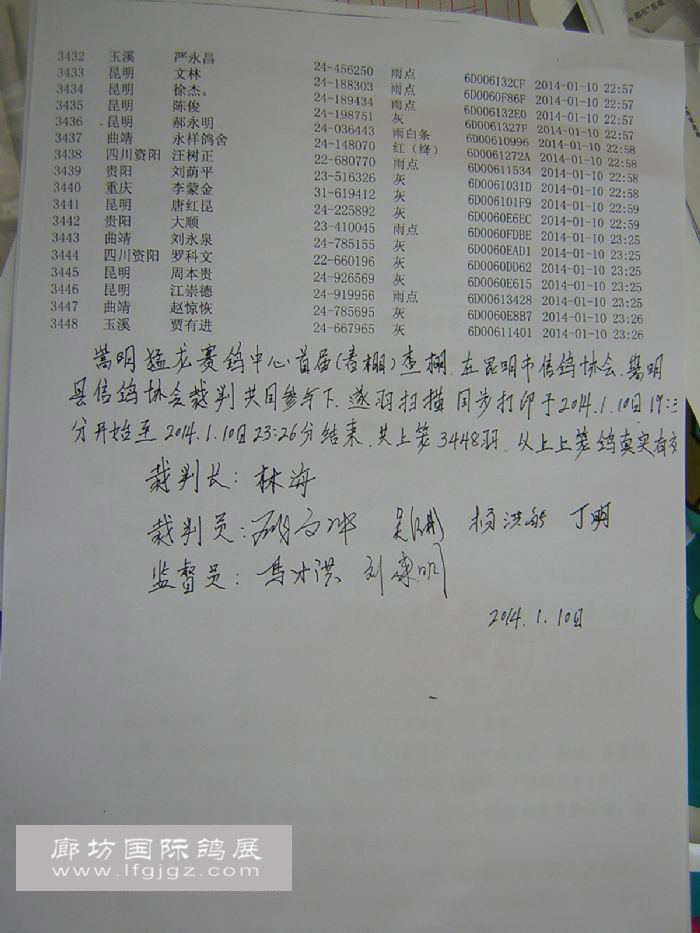 3432 玉溪 严永昌 24-456250 雨点 6D006132CF 2014-01-10 22:57
3433 昆明 文林 24-188303 雨点 6D0060F86F 2014-01-10 22:57
3434 昆明 徐杰。 24-189434 雨点 6D006132E0 2014-01-10 22:57
3435 昆明 陈俊 24-198751 灰 6D0061327F 2014-01-10 22:57
3436 昆明 郝永明 24-036443 雨白条 6D00610996 2014-01-10 22:58
3437 曲靖 永祥鸽舍 24-148070 红（绛） 6D0061272A 2014-01-10 22:58
3438 四川资阳 汪树正 22-680770 雨点 6D00611534 2014-01-10 22:58
3439 贵阳 刘荫平 23-516326 灰 6D0061031D 2014-01-10 22:58
3440 重庆 李蒙金 31-619412 灰 6D006101F9 2014-01-10 22:59
3441 昆明 唐红昆 24-225892 灰 6D0060E6EC 2014-01-10 22:59
3442 贵阳 大顺 23-410045 雨点 6D0060FDBE 2014-01-10 23:25
3443 曲靖 刘永泉 24-785155 灰 6D0060EAD1 2014-01-10 23:25
3444 四川资阳 罗科文 22-660196 灰 6D0060DD62 2014-01-10 23:25
3445 昆明 周本贵 24-926569 灰 6D0060E615 2014-01-10 23:25
3446 昆明 江崇德 24-919956 雨点 6D00613428 2014-01-10 23:25
3447 曲靖 赵惊恢 24-785695 灰 6D0060E8B7 2014-01-10 23:26
3448 玉溪 贾有进 24-667965 灰 6D00611401 2014-01-10 23:26
嵩明猛龙赛鸽中心首届(春棚)查棚.在昆明市信鸽协会.嵩明
县信鸽协会裁判共同参与下.逐羽扫描同步打印于2014.1.10日19:3
分开始至2014.1.10日23:26分结束.共上笼3448羽.以上上笼鸽真实有效
裁判长:林海
裁判员: 杨洪 丁明
监督员:马才洪 刘康明
2014.1.10日
廊坊国际鸽展
www.lfgjgz.com